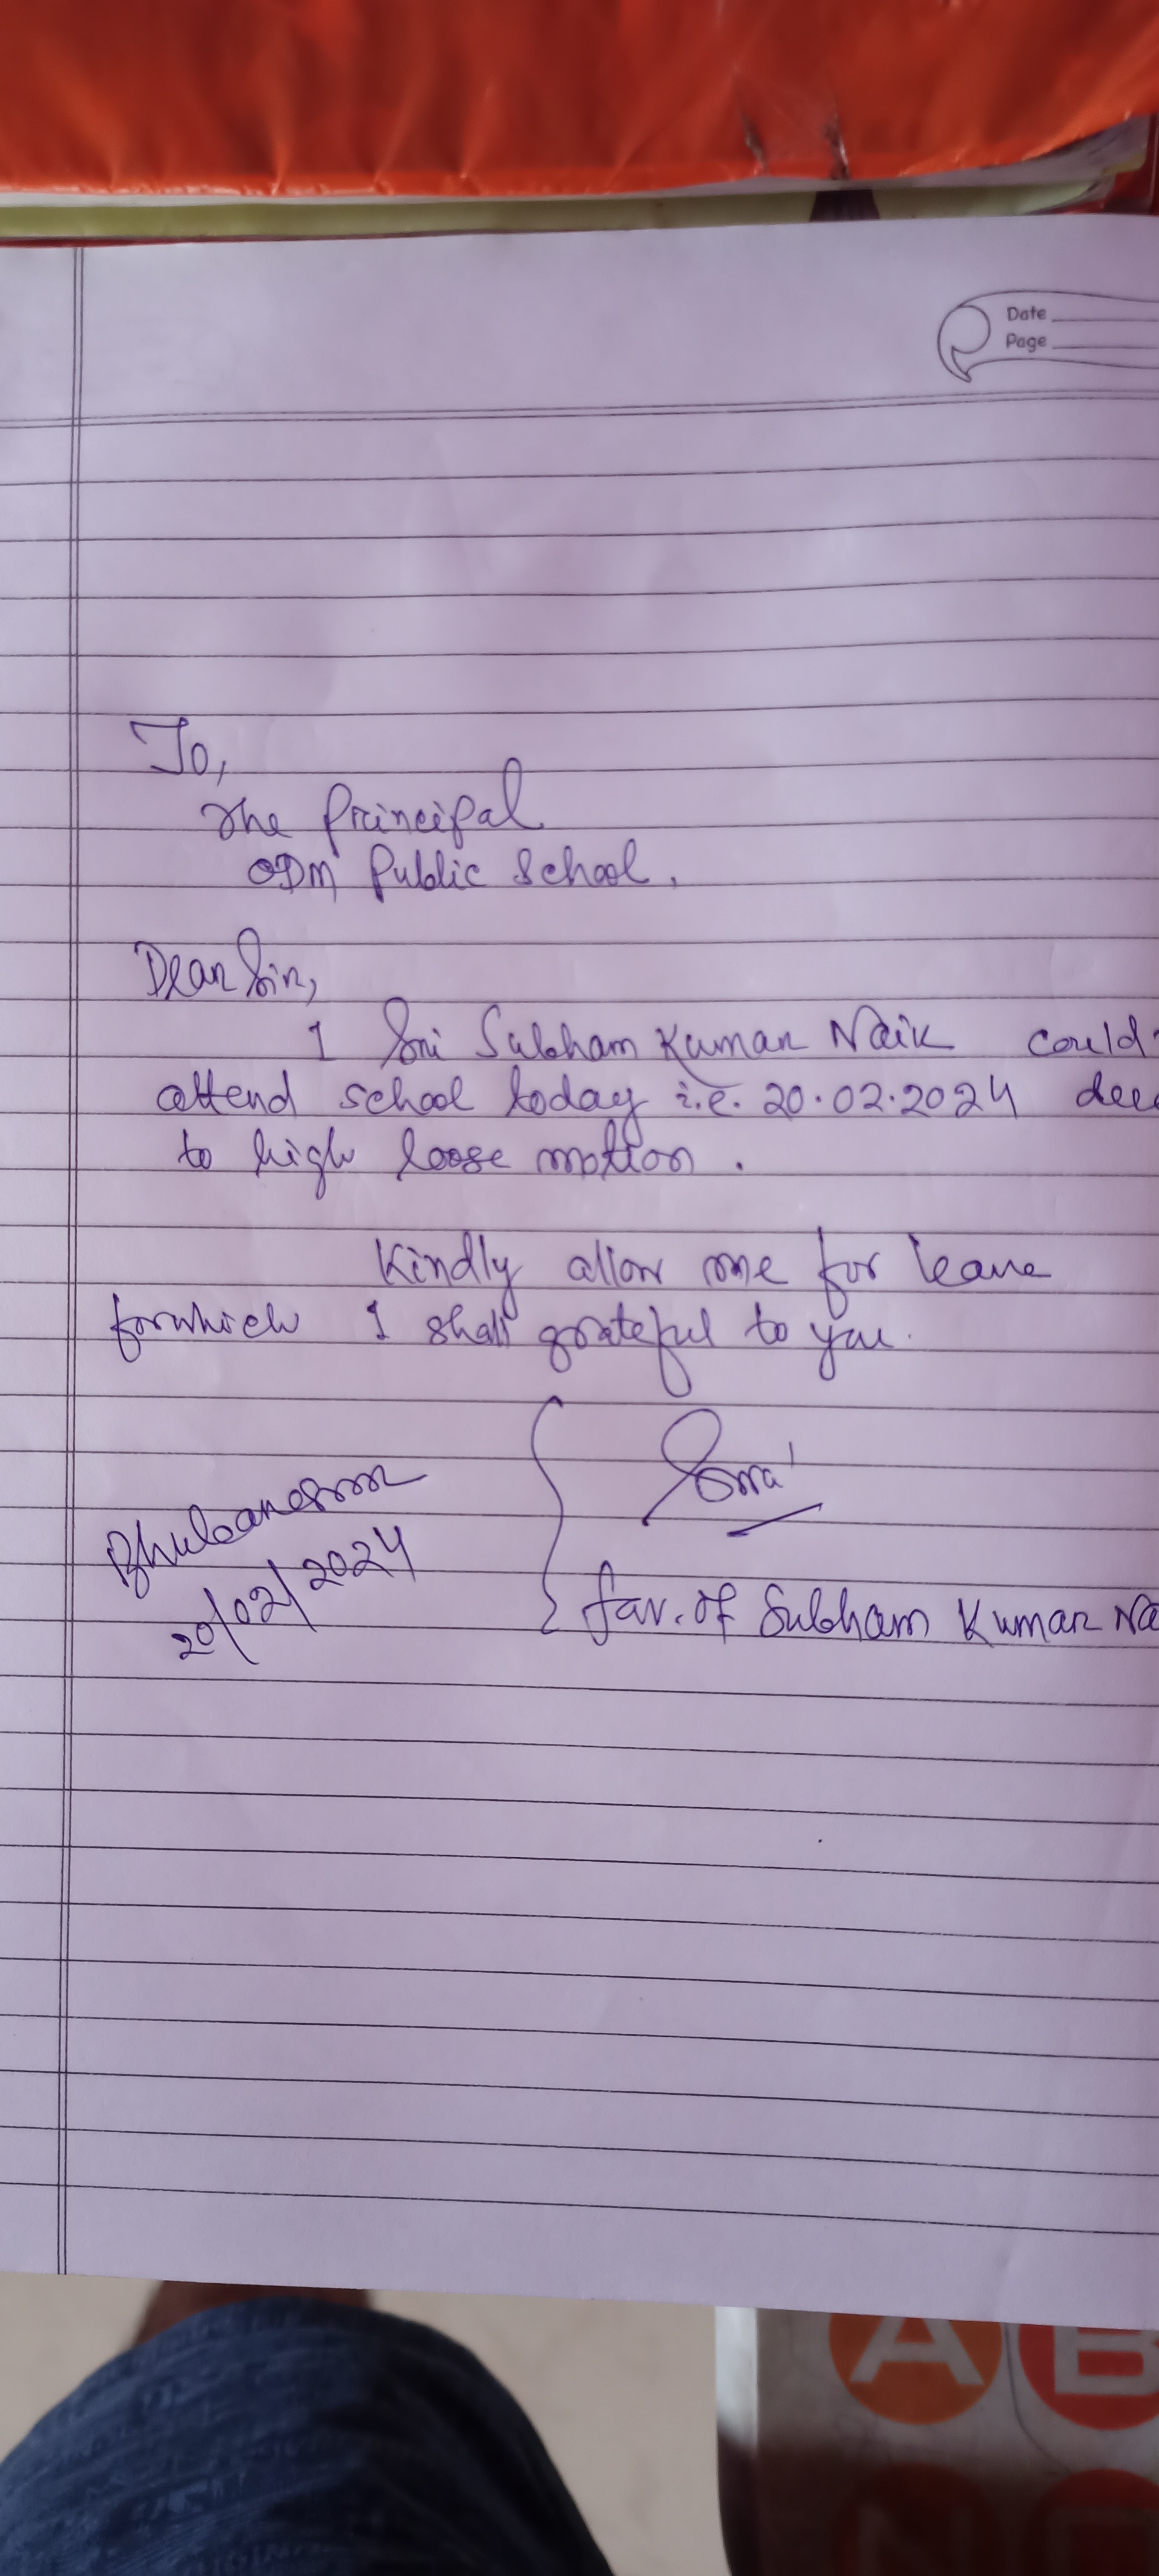 Date
Page
To,
The Principal
ODM Public School,
Dear Sir,
I Sri Subham Kumar Naik could
attend school today i.e. 20.02.2024 due
to high loose motion.
Kindly allow me for leave
forwhich I shall grateful to you.
Bhubaneswar
20/02/2024
fav. of Subham Kumar Na
A B